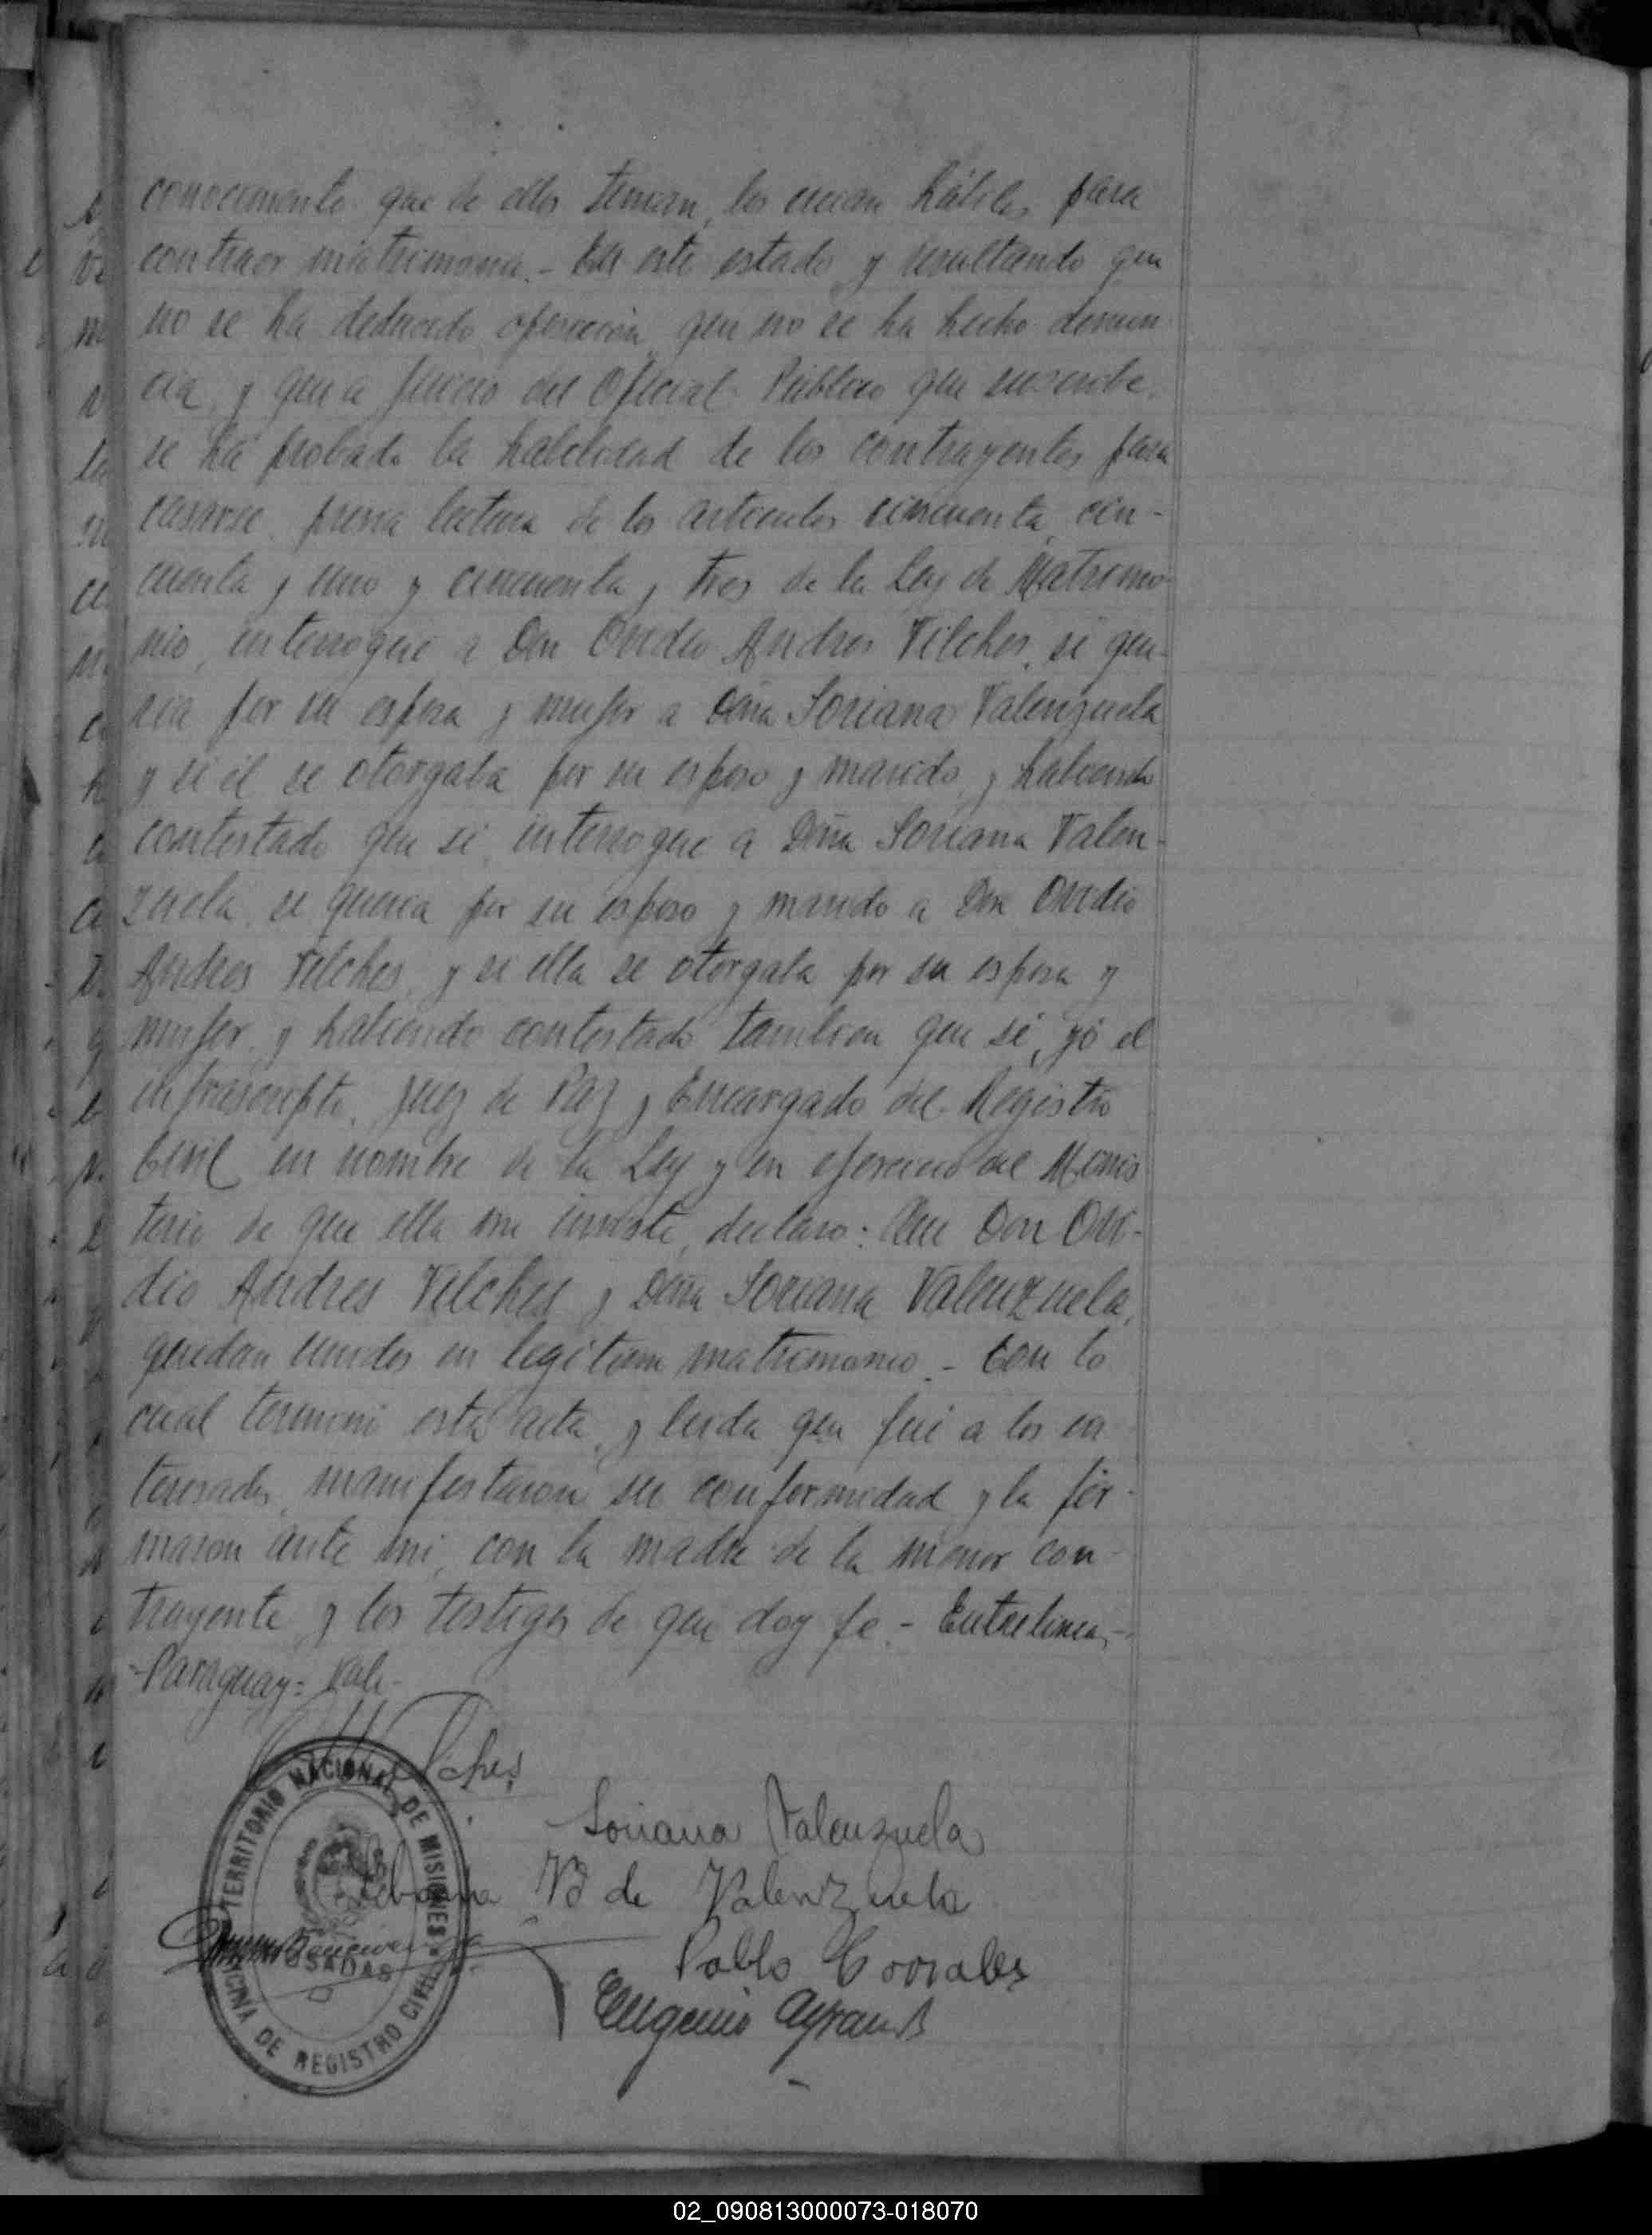 conocimiento que de ellos tenian, los creian hábiles para
contraer matrimonio. - En este estado y resultando que
no se ha deducido oposicion, que no se ha hecho denun-
cia, y que a juicio del Oficial Público que suscribe,
se há probado la habilidad de los contrayentes para
casarse, previa lectura de los articulos cincuenta, cin-
cuenta y uno y cincuenta y tres de la Ley de Matrimo-
nio, interrogué a Don Ovidio Andres Vilches, si que-
ria por su esposa y mujer a Doña Soriana Valenzuela
y si él se otorgaba por su esposo y marido, y habiendo
contestado que si, interrogué a Doña Soriana Valen-
zuela, si queria por su esposo y marido a Don Ovidio
Andres Vilches, y si ella se otorgaba por su esposa y
mujer, y habiendo contestado tambien que si, yó el
infrascripto, Juez de Paz y Encargado del Registro
Civil en nombre de la Ley y en ejercicio del Minis
terio de que ella me inviste, declaro: Que Don Ovi-
dio Andres Vilches y Doña Soriana Valenzuela,
quedan unidos en legitimo matrimonio. - Con lo
cual terminó esta acta, y leida que fué a los in
teresados, manifestaron su conformidad y la fir-
maron ante mi, con la madre de la menor con-
trayente y los testigos de que doy fe. - Entrelinea,-
-Paraguay= Vale-
Vilches
Soriana Valenzuela
V de Valenzuela
Pablo Corrales
Eugenio
TERRITORIO NACIONAL DE MISIONES
POSADAS
OFICINA DE REGISTRO CIVIL
02_090813000073-018070